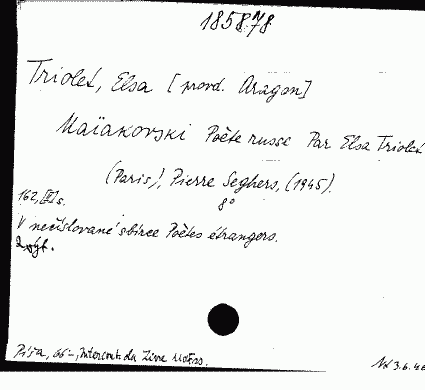 185878
Triolet, Elsa [provd. Aragon]
Maïakovski Poète russe Par Elsa Triolet
(Paris), Pierre Seghers, (1945).
8°
162, III s.
V nečíslované sbírce Poètes étrangers.
2 výt.
66-, du Livre
3.6.46